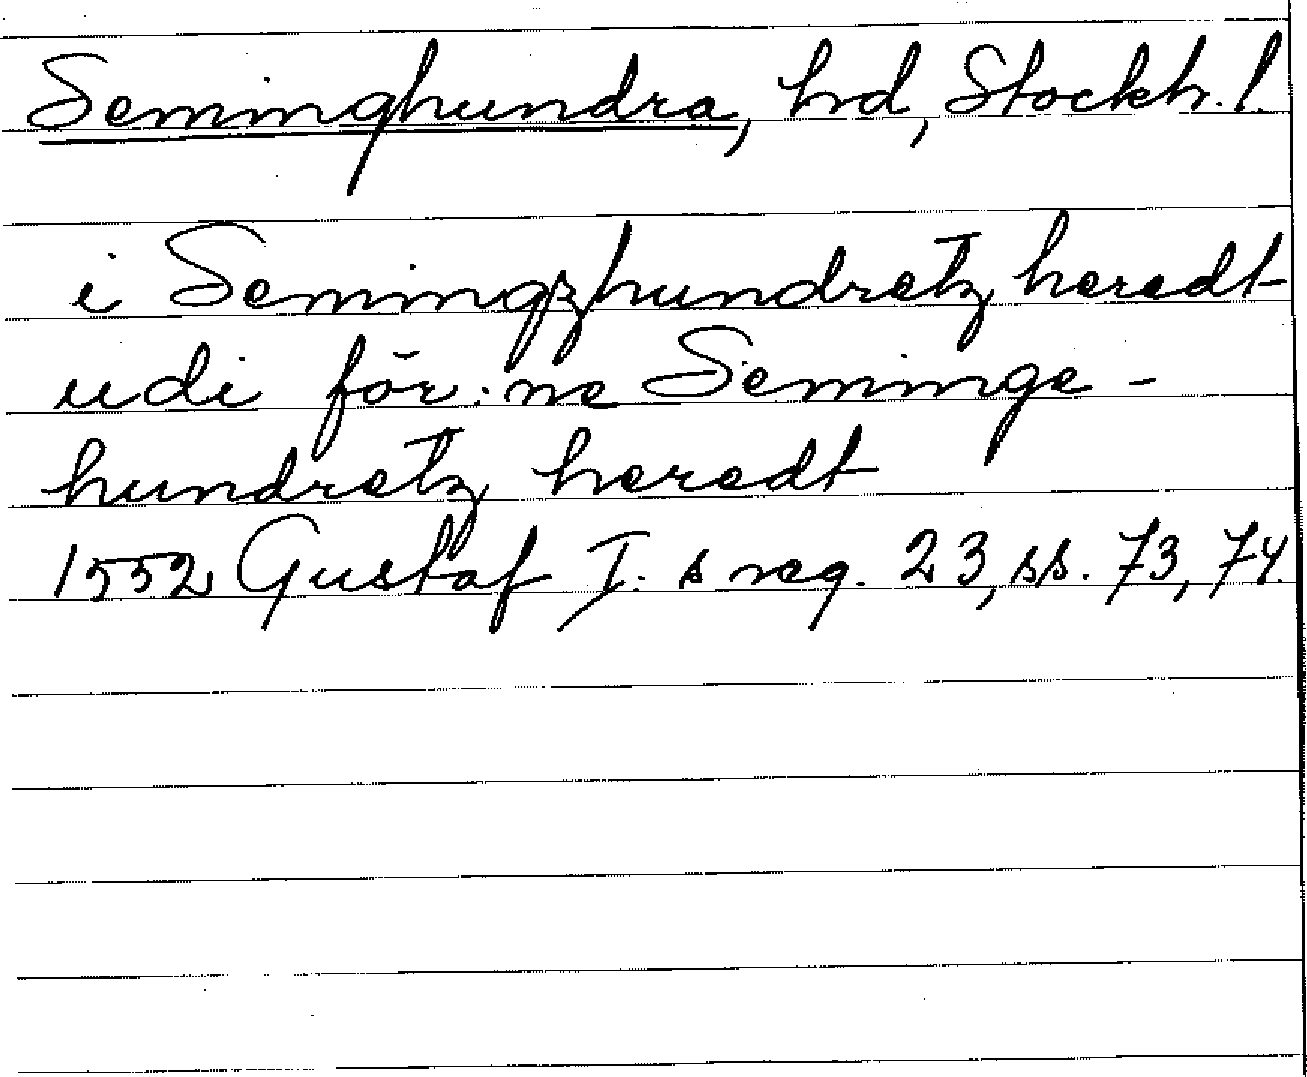 Seminghundra, hd, Stockh. l.
i Semingzhundretz heredt
udi för:ne Seminge-
hundretz heredt
1552 Gustaf I:s reg. 23, ss. 73, 74.